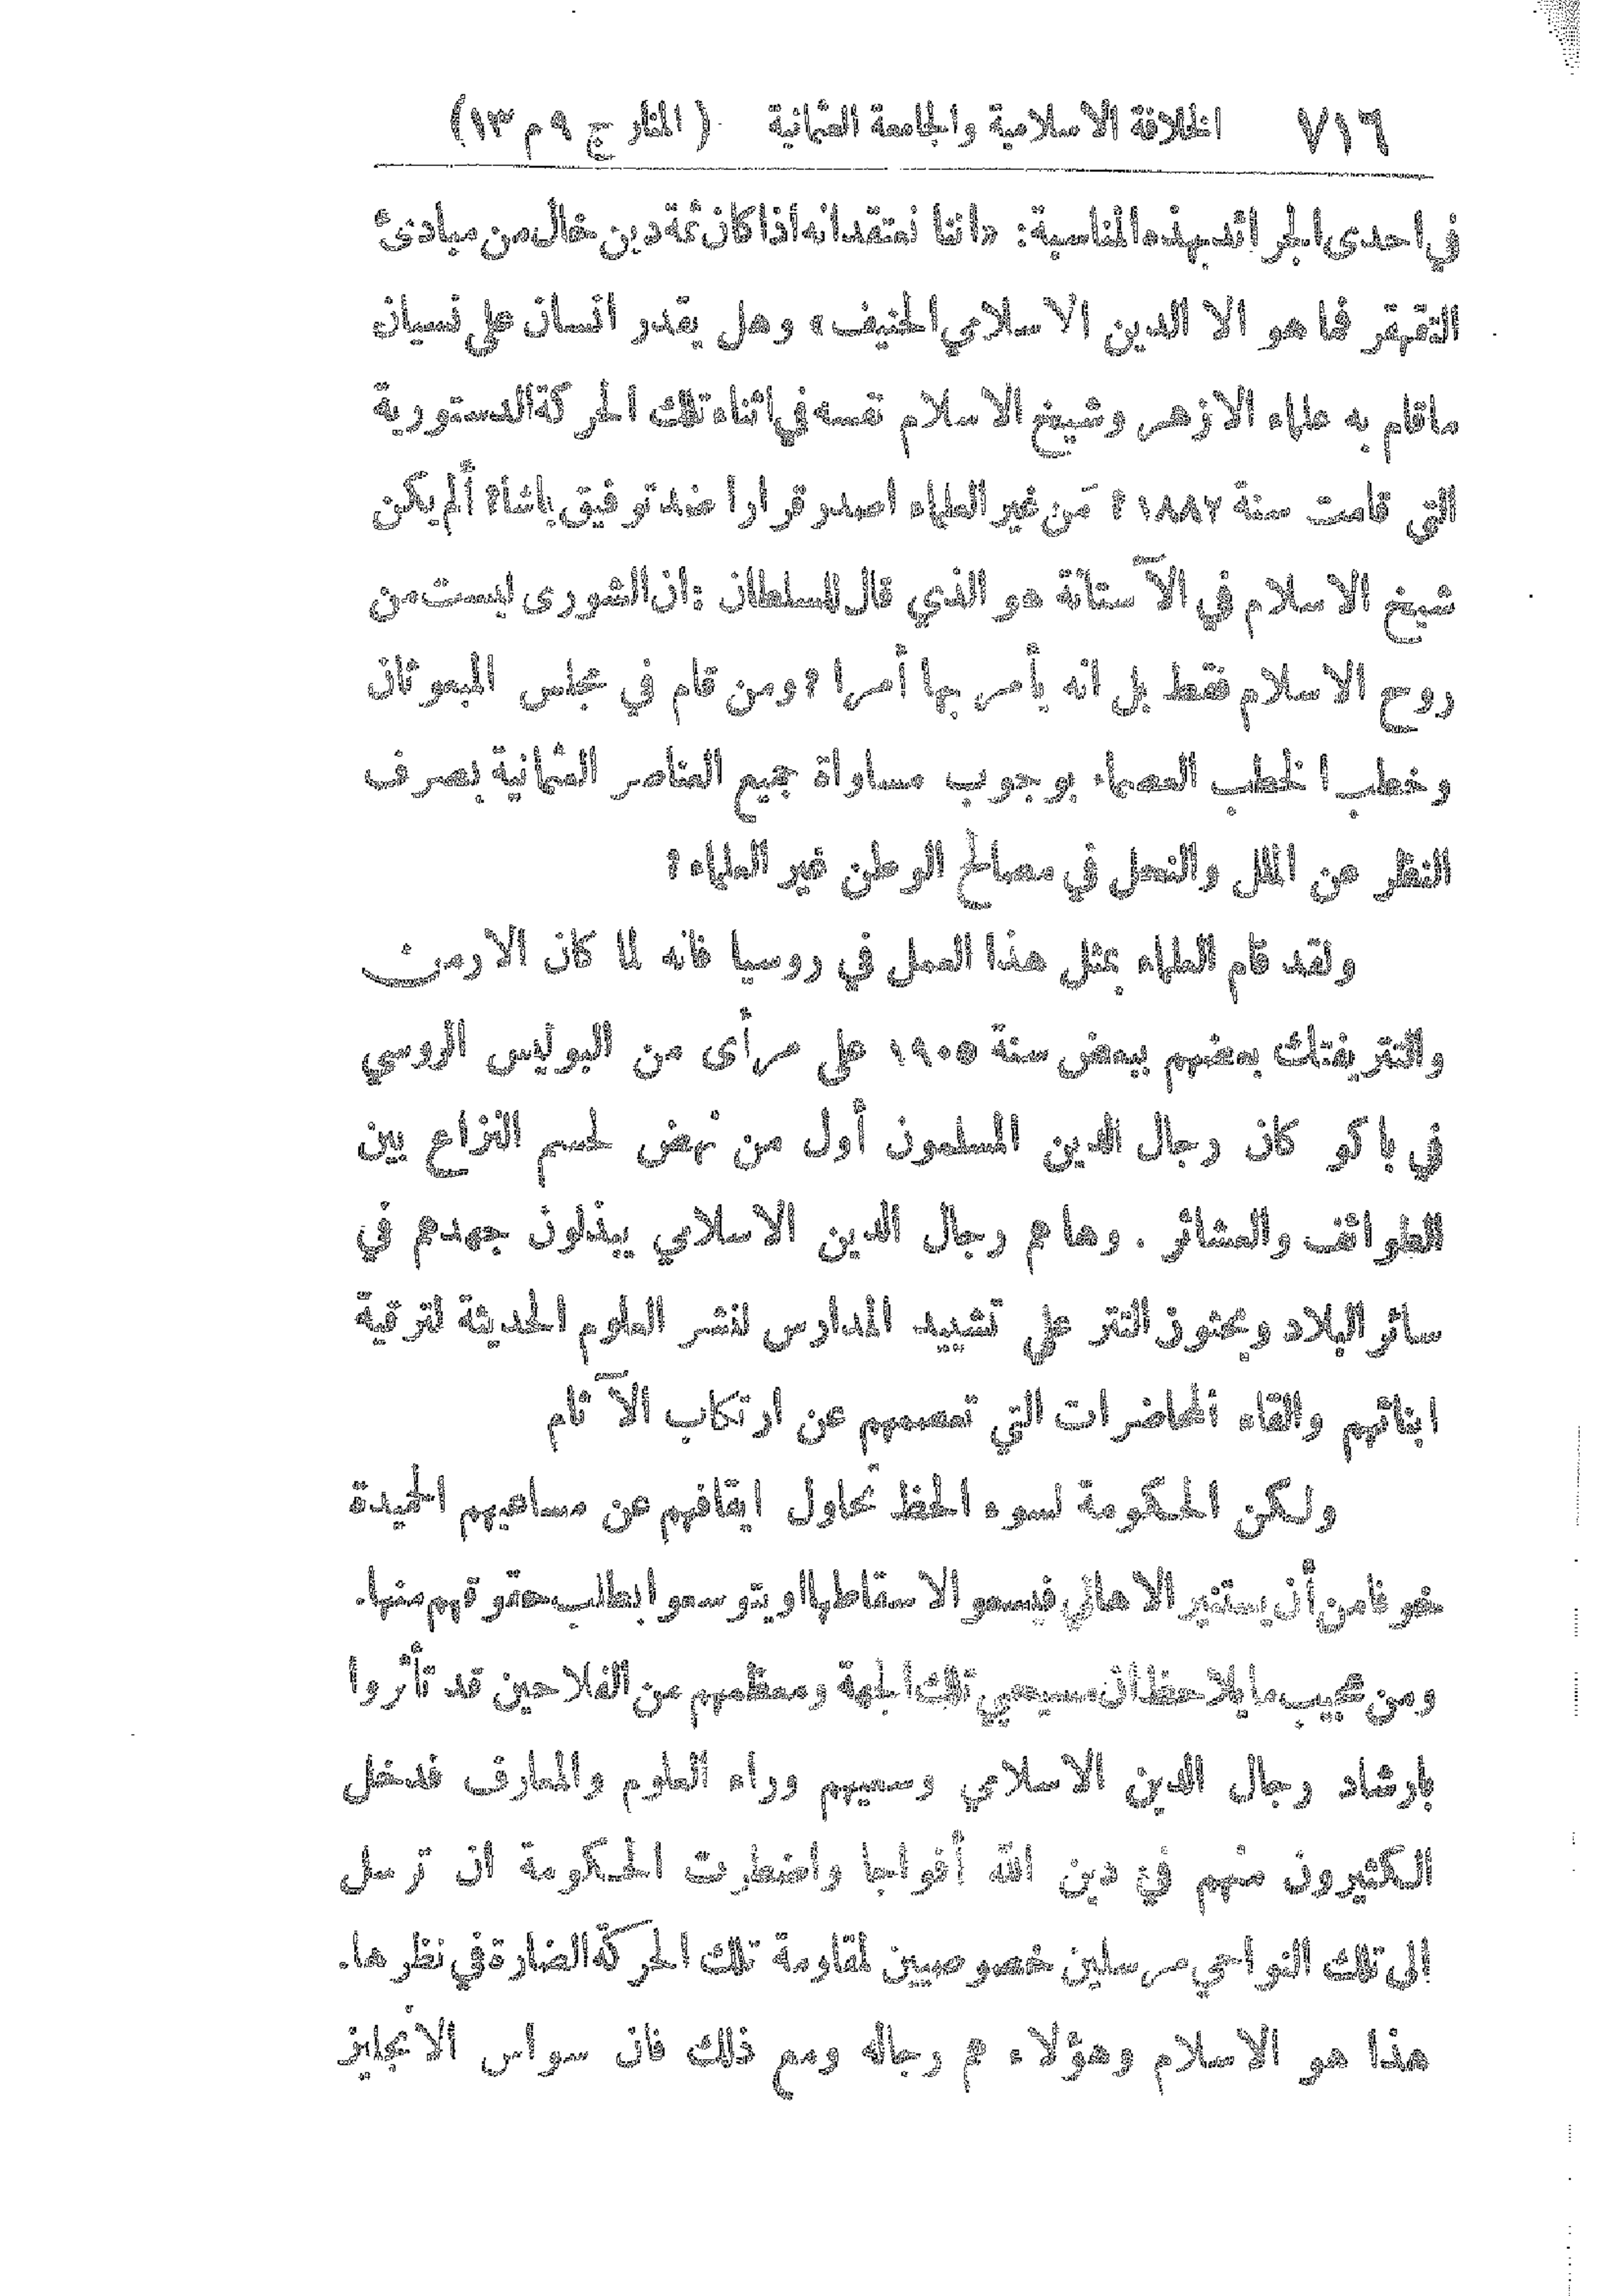 ٧١٦ الخلافة الاسلامية والجامعة العثمانية (المنار ج ٩ م ١٣)
في احدى الجرائد بهذه المناسبة: «اننا نعتقد انه اذا كان ثمة دين خال من مبادئ
التقهقر فما هو الا الدين الاسلامي الحنيف» وهل يقدر انسان على نسيان
ماقام به علماء الازهر وشيخ الاسلام نفسه في اثناء تلك الحركة الدستورية
التي قامت سنة ١٨٨٢؟ مَن غير العلماء اصدر قرارا ضد توفيق باشا؟ ألم يكن
شيخ الاسلام في الآستانة هو الذي قال للسلطان: ان الشورى ليست من
روح الاسلام فقط بل انه يأمر بها أمرا؟ ومن قام في مجلس المبعوثان
وخطب الخطب العصماء بوجوب مساواة جميع العناصر العثمانية بصرف
النظر عن الملل والنحل في مصالح الوطن غير العلماء؟
ولقد قام العلماء بمثل هذا العمل في روسيا فانه لما كان الارمن
والتتر يفتك بعضهم ببعض سنة ١٩٠٥ على مرأى من البوليس الروسي
في باكو كان رجال الدين المسلمون أول من نهض لحسم النزاع بين
الطوائف والعشائر. وها هم رجال الدين الاسلامي يبذلون جهدهم في
سائر البلاد ويحثون التتر على تشييد المدارس لنشر العلوم الحديثة لترقية
ابنائهم والقاء المحاضرات التي تعصمهم عن ارتكاب الآثام
ولكن الحكومة لسوء الحظ تحاول ايقافهم عن مساعيهم الحميدة
خوفا من أن يستنير الاهالي فيسعوا لاسقاطها او يتوسعوا بطلب حقوقهم منها.
ومن عجيب ما يلاحظ ان مسيحيي تلك الجهة ومعظمهم من الفلاحين قد تأثروا
بارشاد رجال الدين الاسلامي وسعيهم وراء العلوم والمعارف فدخل
الكثيرون منهم في دين الله أفواجا واضطرت الحكومة ان ترسل
الى تلك النواحي مرسلين خصوصيين لمقاومة تلك الحركة الضارة في نظرها.
هذا هو الاسلام وهؤلاء هم رجاله ومع ذلك فان سواس الانجليز